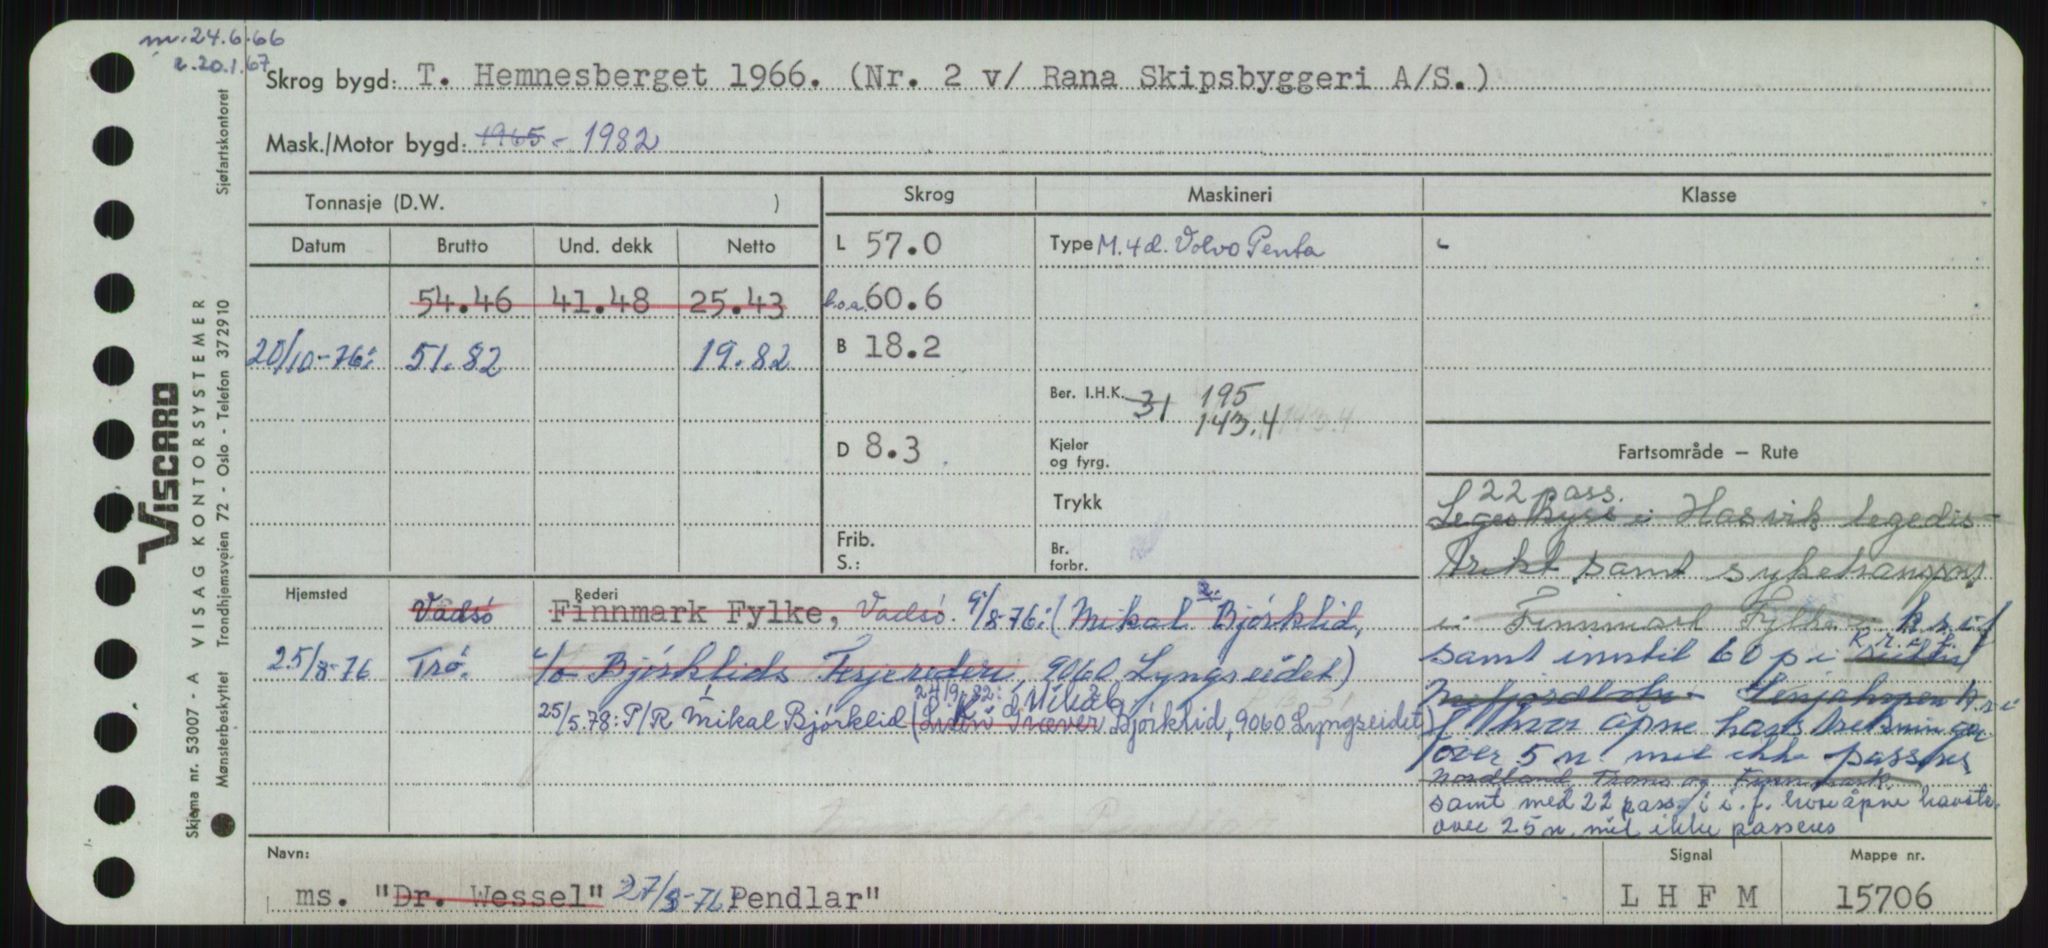 m. 24.6.66
r. 20.1.67
Skrog bygd: T. Hemnesberget 1966. (Nr. 2 v/ Rana Skipsbyggeri A/S.)
Mask./Motor bygd: 1965 - 1982
Tonnasje (D.W. )
Skrog
Maskineri
Klasse
Datum
Brutto
Und. dekk
Netto
L 57.0
Type M. 4 d. Volvo Penta
54.46 41.48 25.43
l.o.a. 60.6
20/10-76: 51.82 19.82
B 18.2
Ber. I.H.K. 31 195
143.4 143.4
D 8.3
Kjeler
og fyrg.
Trykk
Frib.
S.:
Br.
forbr.
Fartsområde — Rute
22 pass.
i Hasvik legedis-
trikt samt syketransport
i Finnmark Fylke
samt inntil 60 p i
f hvor åpne havstrekninger
over 5 n. mil ikke passeres
Nordland, Troms og Finnmark.
samt med 22 pass. i i.f. hvor åpne havstr.
over 25 n. mil ikke passeres
Hjemsted
Rederi
Vadsö Finnmark Fylke, Vadsö. 9/8-76: (Mikal Bjørklid,
25/8-76 Trö. c/o Bjørklids Ferjerederi, 9060 Lyngseidet)
24/9-82: Mikal
25/5.78: P/R Mikal Bjørklid ( Bjørklid, 9060 Lyngseidet)
Navn:
ms. "Dr. Wessel" 27/8-76 Pendlar"
Signal
L H F M
Mappe nr.
15706
VISCARD
Skjema nr. 53007 - A VISAG KONTORSYSTEMER
Mønsterbeskyttet Trondhjemsveien 72 - Oslo - Telefon 372910
Sjøfartskontoret